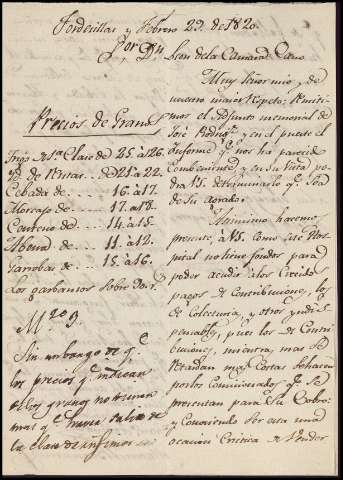 Tordecillas y Febrero 29. de 1820.
Sor. Dn. Leon de la Camara Cano
Muy Señor mio y de
nuestro mayor respeto: Remiti-
mos el adjunto memorial de
José Rodrigz. y en el puesto el
Informe qe. nos ha parecido
Combeniente, y en su vista po-
drá VS. determinarlo qe. sea
de su agrado.
Asimismo hacemos
presente a VS. como este Ros-
pital no tiene fondos para
poder acudir a los Crecidos
pagos de Contribuciones, los
de Colecturia, y otros yndis-
pensables, pues los de Contri-
buciones, mientras mas se
retardan mas Costas se hacen
por los Comisionados qe. se
presentan para su Cobro:
y Combiniendo ser esta una
ocasion Critica de Vender
Precios de Granos
Trigo de 1a. Clase de 25 à 26.
Yd. de Rentas ... de 21 à 22.
Cebada de ... 16 à 17.
Morcajo de ... 17 à 18.
Centeno de ... 14 à 15.
Abena de ... 11 à 12.
Garrobas de ... 15 à 16.
Los garbanzos sobre 40 r.
Sin embargo de qe.
los precios qe. indican
a los granos no tienen
mas qe. hacer salida de
la clase de infimos